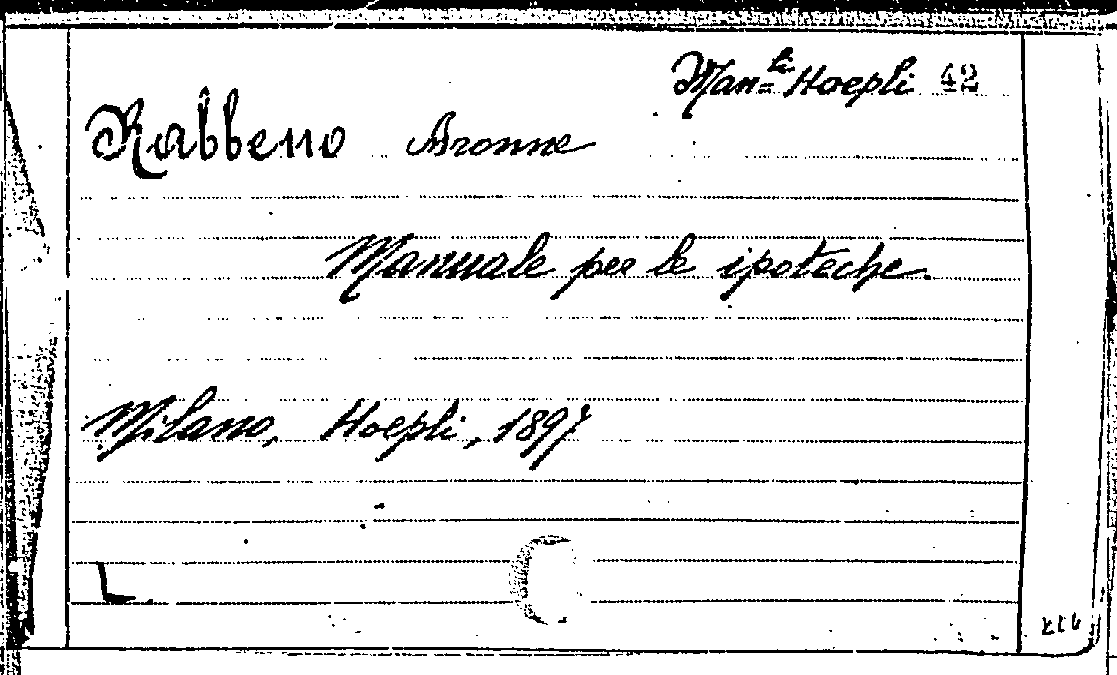 Man.li Hoepli 42
Rabbeno Aronne
Manuale per le ipoteche.
Milano, Hoepli, 1897
L